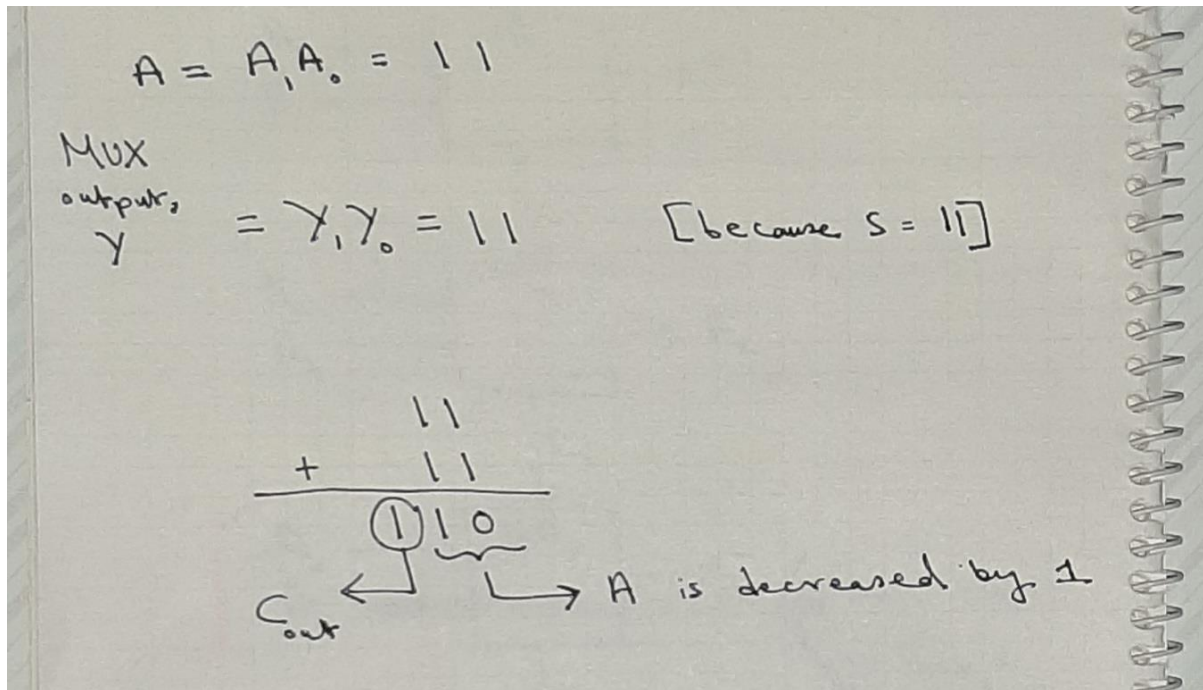 A = A₁A₀ = 11
MUX
output,
Y = Y₁Y₀ = 11 [because S = 11]
11
+ 11
1 1 0
Cout
A is decreased by 1